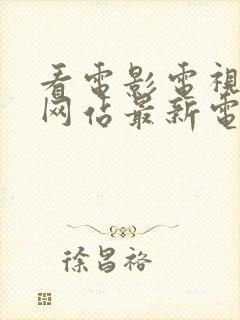 看電影電視
网佔最新電
徐昌裕